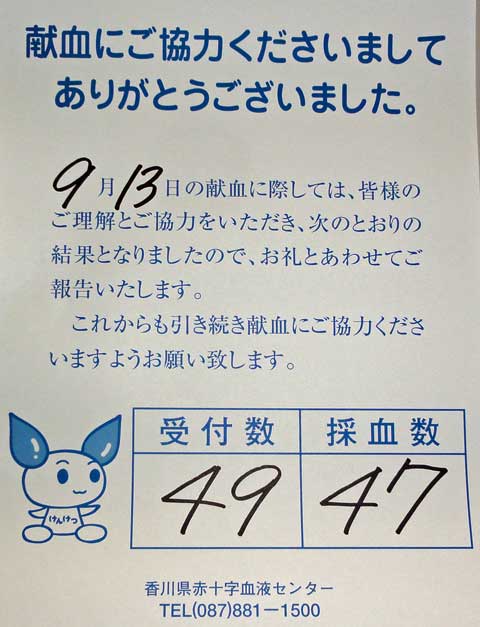 献血にご協力くださいまして
ありがとうございました。
9月13日の献血に際しては、皆様の
ご理解とご協力をいただき、次のとおりの
結果となりましたので、お礼とあわせてご
報告いたします。
これからも引き続き献血にご協力くださ
いますようお願い致します。
受付数 採血数
49 47
けんけつ
香川県赤十字血液センター
TEL(087)881ー1500